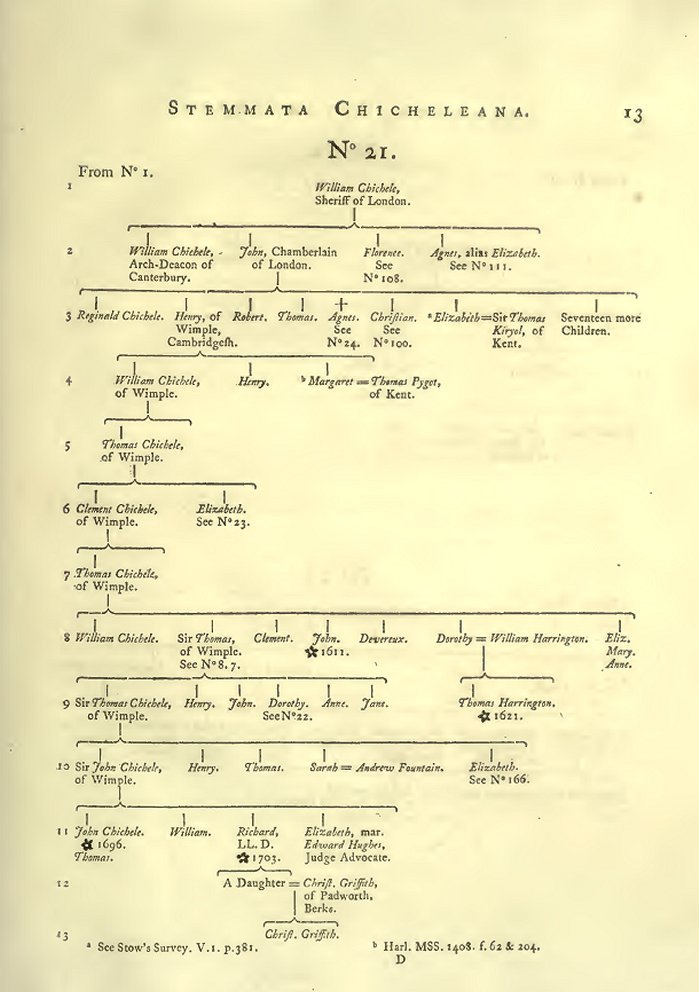 STEMMATA CHICHELEANA. 13
Nº 21.
From Nº 1.
1
William Chichele,
Sheriff of London.
2 William Chichele, John, Chamberlain Florence. Agnes, alias Elizabeth.
Arch-Deacon of of London. See See Nº 111.
Canterbury. Nº 108.
3 Reginald Chichele. Henry, of Robert. Thomas. Agnes. Chriſtian. ᵃ Elizabeth = Sir Thomas Seventeen more
Wimple, See See Kiryol, of Children.
Cambridgeſh. Nº 24. Nº 100. Kent.
4 William Chichele, Henry. ᵇ Margaret = Thomas Pygot,
of Wimple. of Kent.
5 Thomas Chichele,
of Wimple.
6 Clement Chichele, Elizabeth.
of Wimple. See Nº 23.
7 Thomas Chichele,
of Wimple.
8 William Chichele. Sir Thomas, Clement. John. Devereux. Dorothy = William Harrington. Eliz.
of Wimple. ✿ 1611. Mary.
See Nº 8. 7. Anne.
9 Sir Thomas Chichele, Henry. John. Dorothy. Anne. Jane. Thomas Harrington.
of Wimple. See Nº 22. ✿ 1621.
10 Sir John Chichele, Henry. Thomas. Sarah = Andrew Fountain. Elizabeth.
of Wimple. See Nº 166.
11 John Chichele. William. Richard, Elizabeth, mar.
✿ 1696. LL. D. Edward Hughes,
Thomas. ✿ 1703. Judge Advocate.
12 A Daughter = Chriſt. Griffith,
of Padworth,
Berks.
13 Chriſt. Griffith.
ᵃ See Stow's Survey. V. 1. p. 381. ᵇ Harl. MSS. 1408. f. 62 & 204.
D